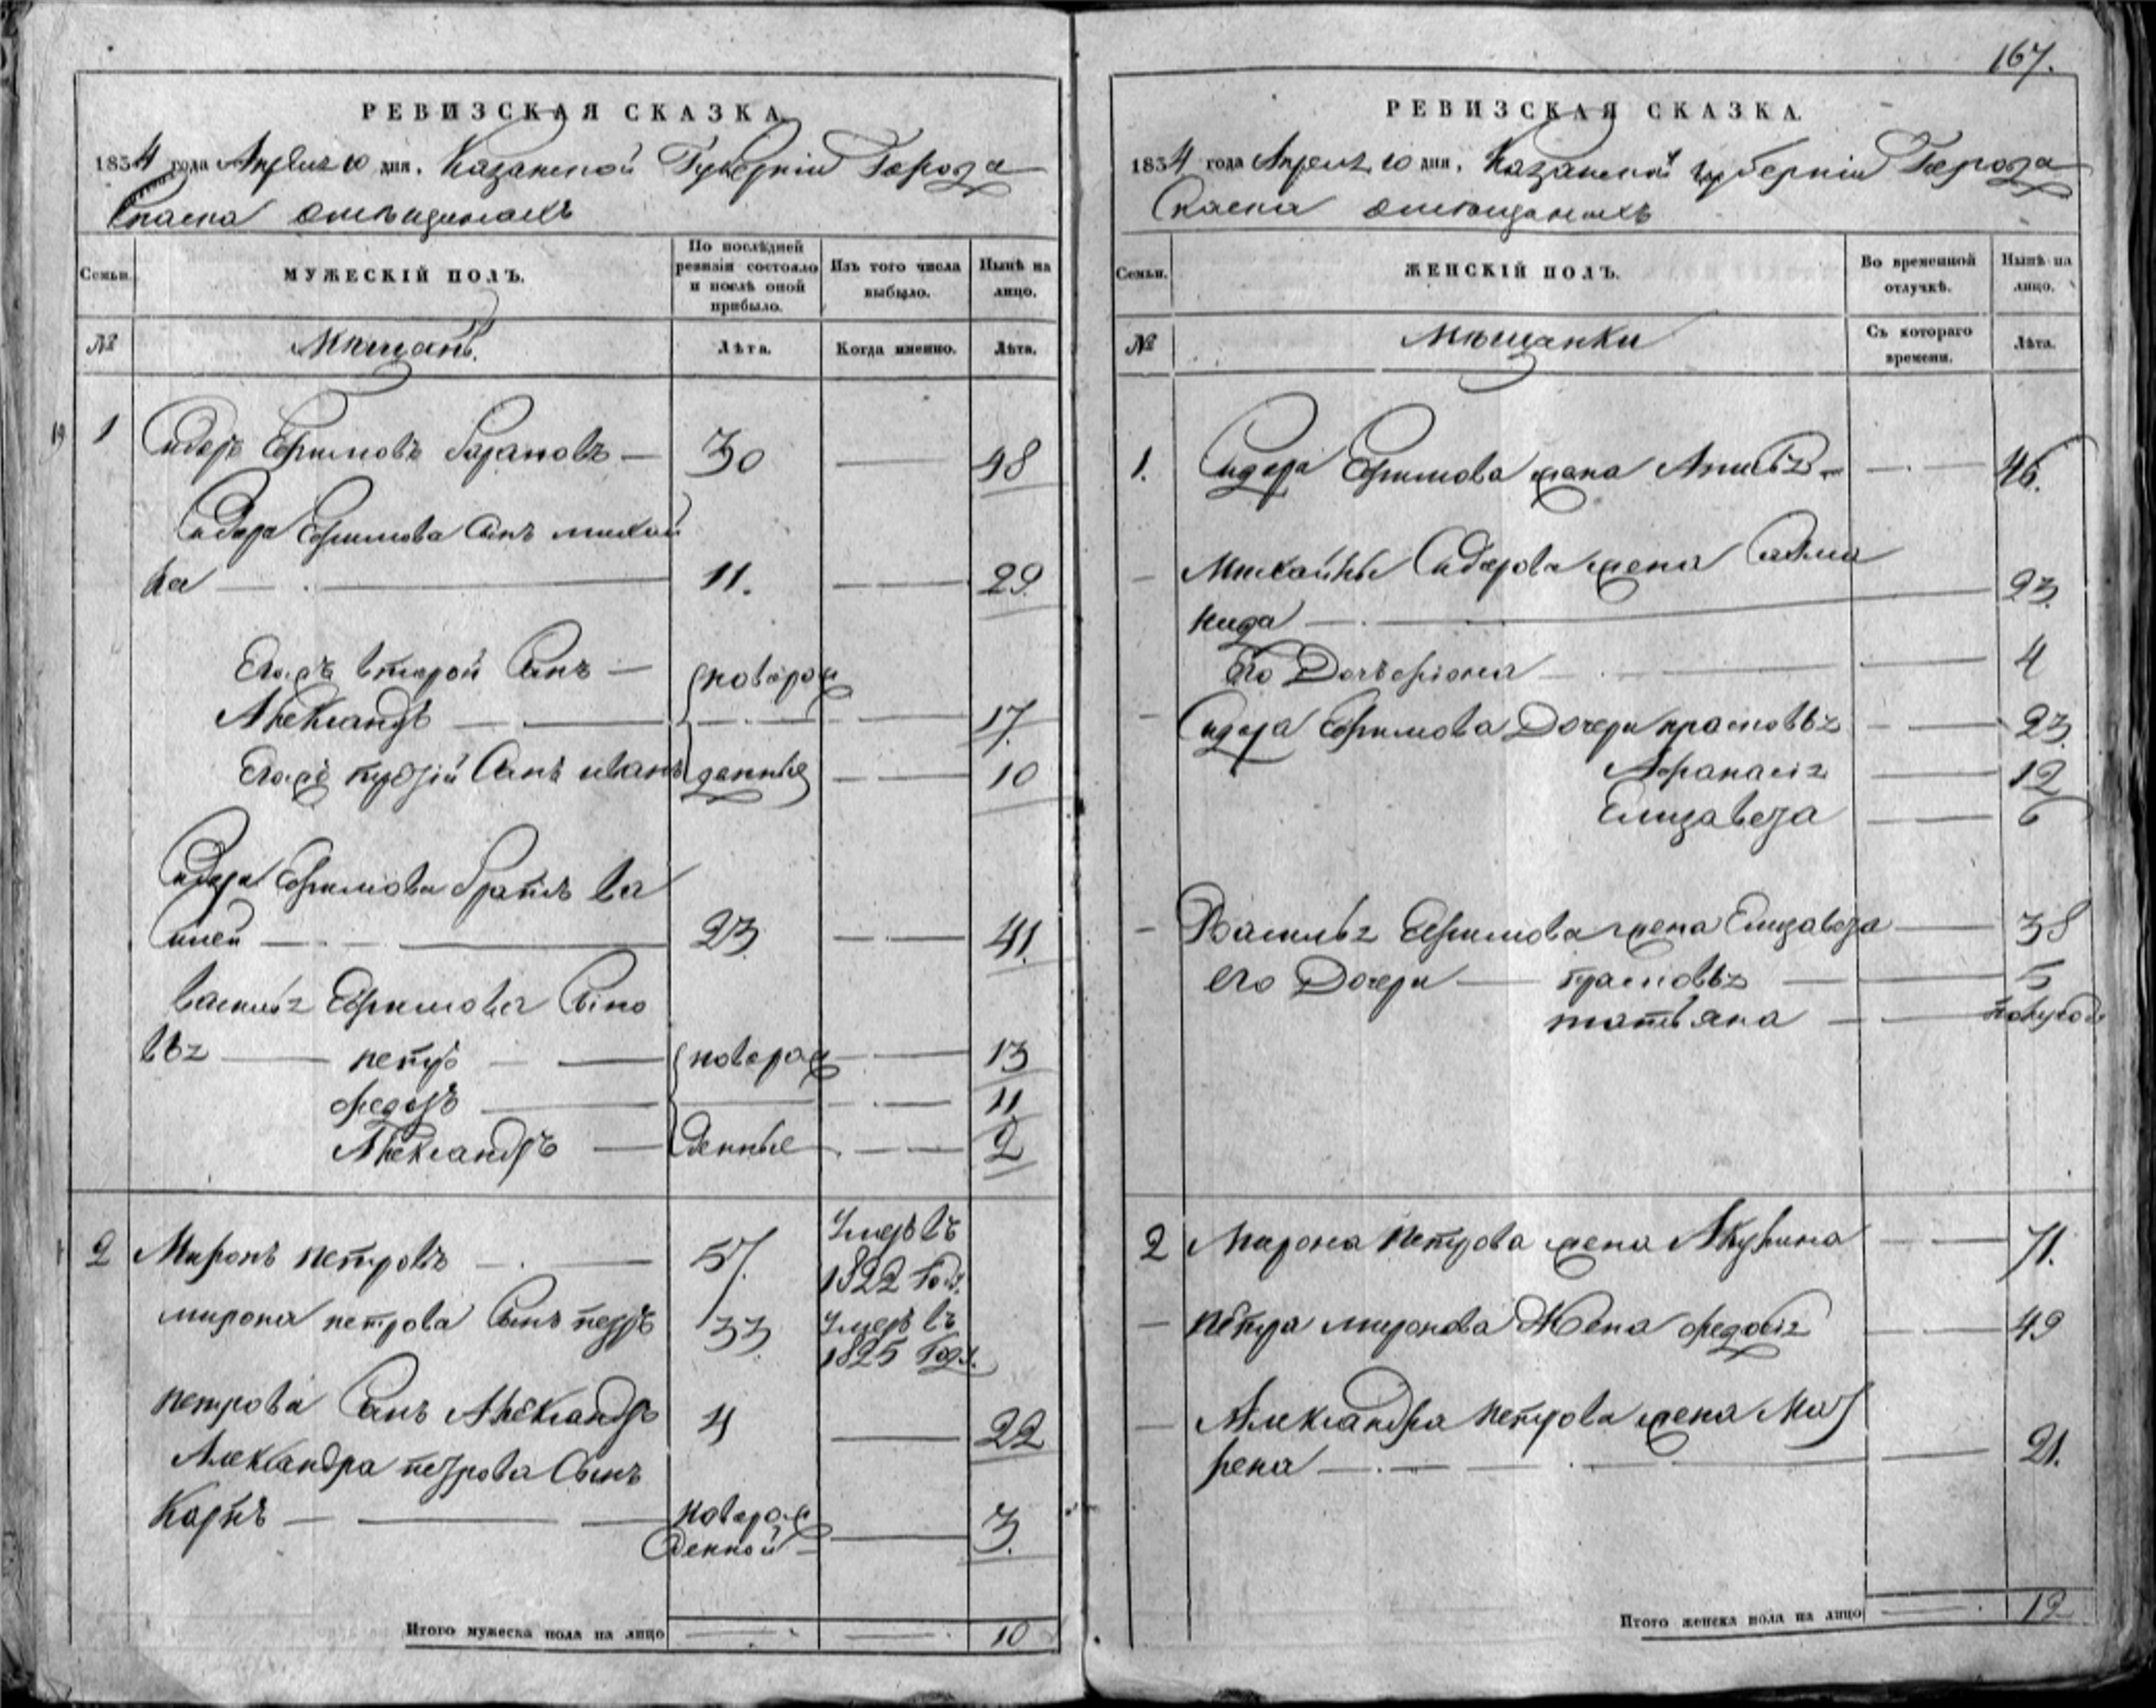 РЕВИЗСКАЯ СКАЗКА
1834 года Апреля 10 дня. Казанской Губерніи Города
Спаска омещанахъ
Семьи.
МУЖЕСКІЙ ПОЛЪ.
По послѣдней ревизіи состояло и послѣ оной прибыло.
Изъ того числа выбыло.
Нынѣ на лицо.
№
Мещанъ.
Лѣта.
Когда именно.
Лѣта.
19
1 Сидоръ Ефимовъ Барановъ — 30 — 48
Сидора Ефимова Сынъ михай
ла — 11. — 29.
Егожъ второй Сынъ — новорож
Александръ — 17.
Егожъ третій Сынъ иванъ денные — 10
Сидора Ефимова братъ ва
силей — 23 — 41.
василья Ефимова Сыно
вья — петръ — новорож — 13
федоръ — 11
Александръ — денные — 2
2 Миронъ петровъ — 57. Умеръ въ
1822 Году.
мирона петрова Сынъ петръ 33 Умеръ въ
1825 Году.
петрова Сынъ Александръ 4 — 22
Александра петрова Сынъ
Карпъ — новорож
денной — 3.
Итого мужеска пола на лицо — — 10
167.
РЕВИЗСКАЯ СКАЗКА.
1834 года Апреля 10 дня. Казанской губерніи Города
Спаска омещанахъ
Семьи.
ЖЕНСКІЙ ПОЛЪ.
Во временной отлучкѣ.
Нынѣ на лицо.
№
Мѣщанки
Съ котораго времени.
Лѣта.
1. Сидора Ефимова жена — 46.
Михайлы Сидорова жена Соломо
нида — 23.
Его Дочь — 4
Сидора Ефимова Дочери прасковья — 23.
Афанасія — 12
Елизавета — 6
— Василья Ефимова жена Елизавета — 38
его Дочери — прасковья — 5
татьяна — полугода
2 Мирона петрова жена Акулина — 71.
— петра миронова Жена федосія — 49
— Александра петрова жена Мат
рена — 21.
Итого женска пола на лицо — 12